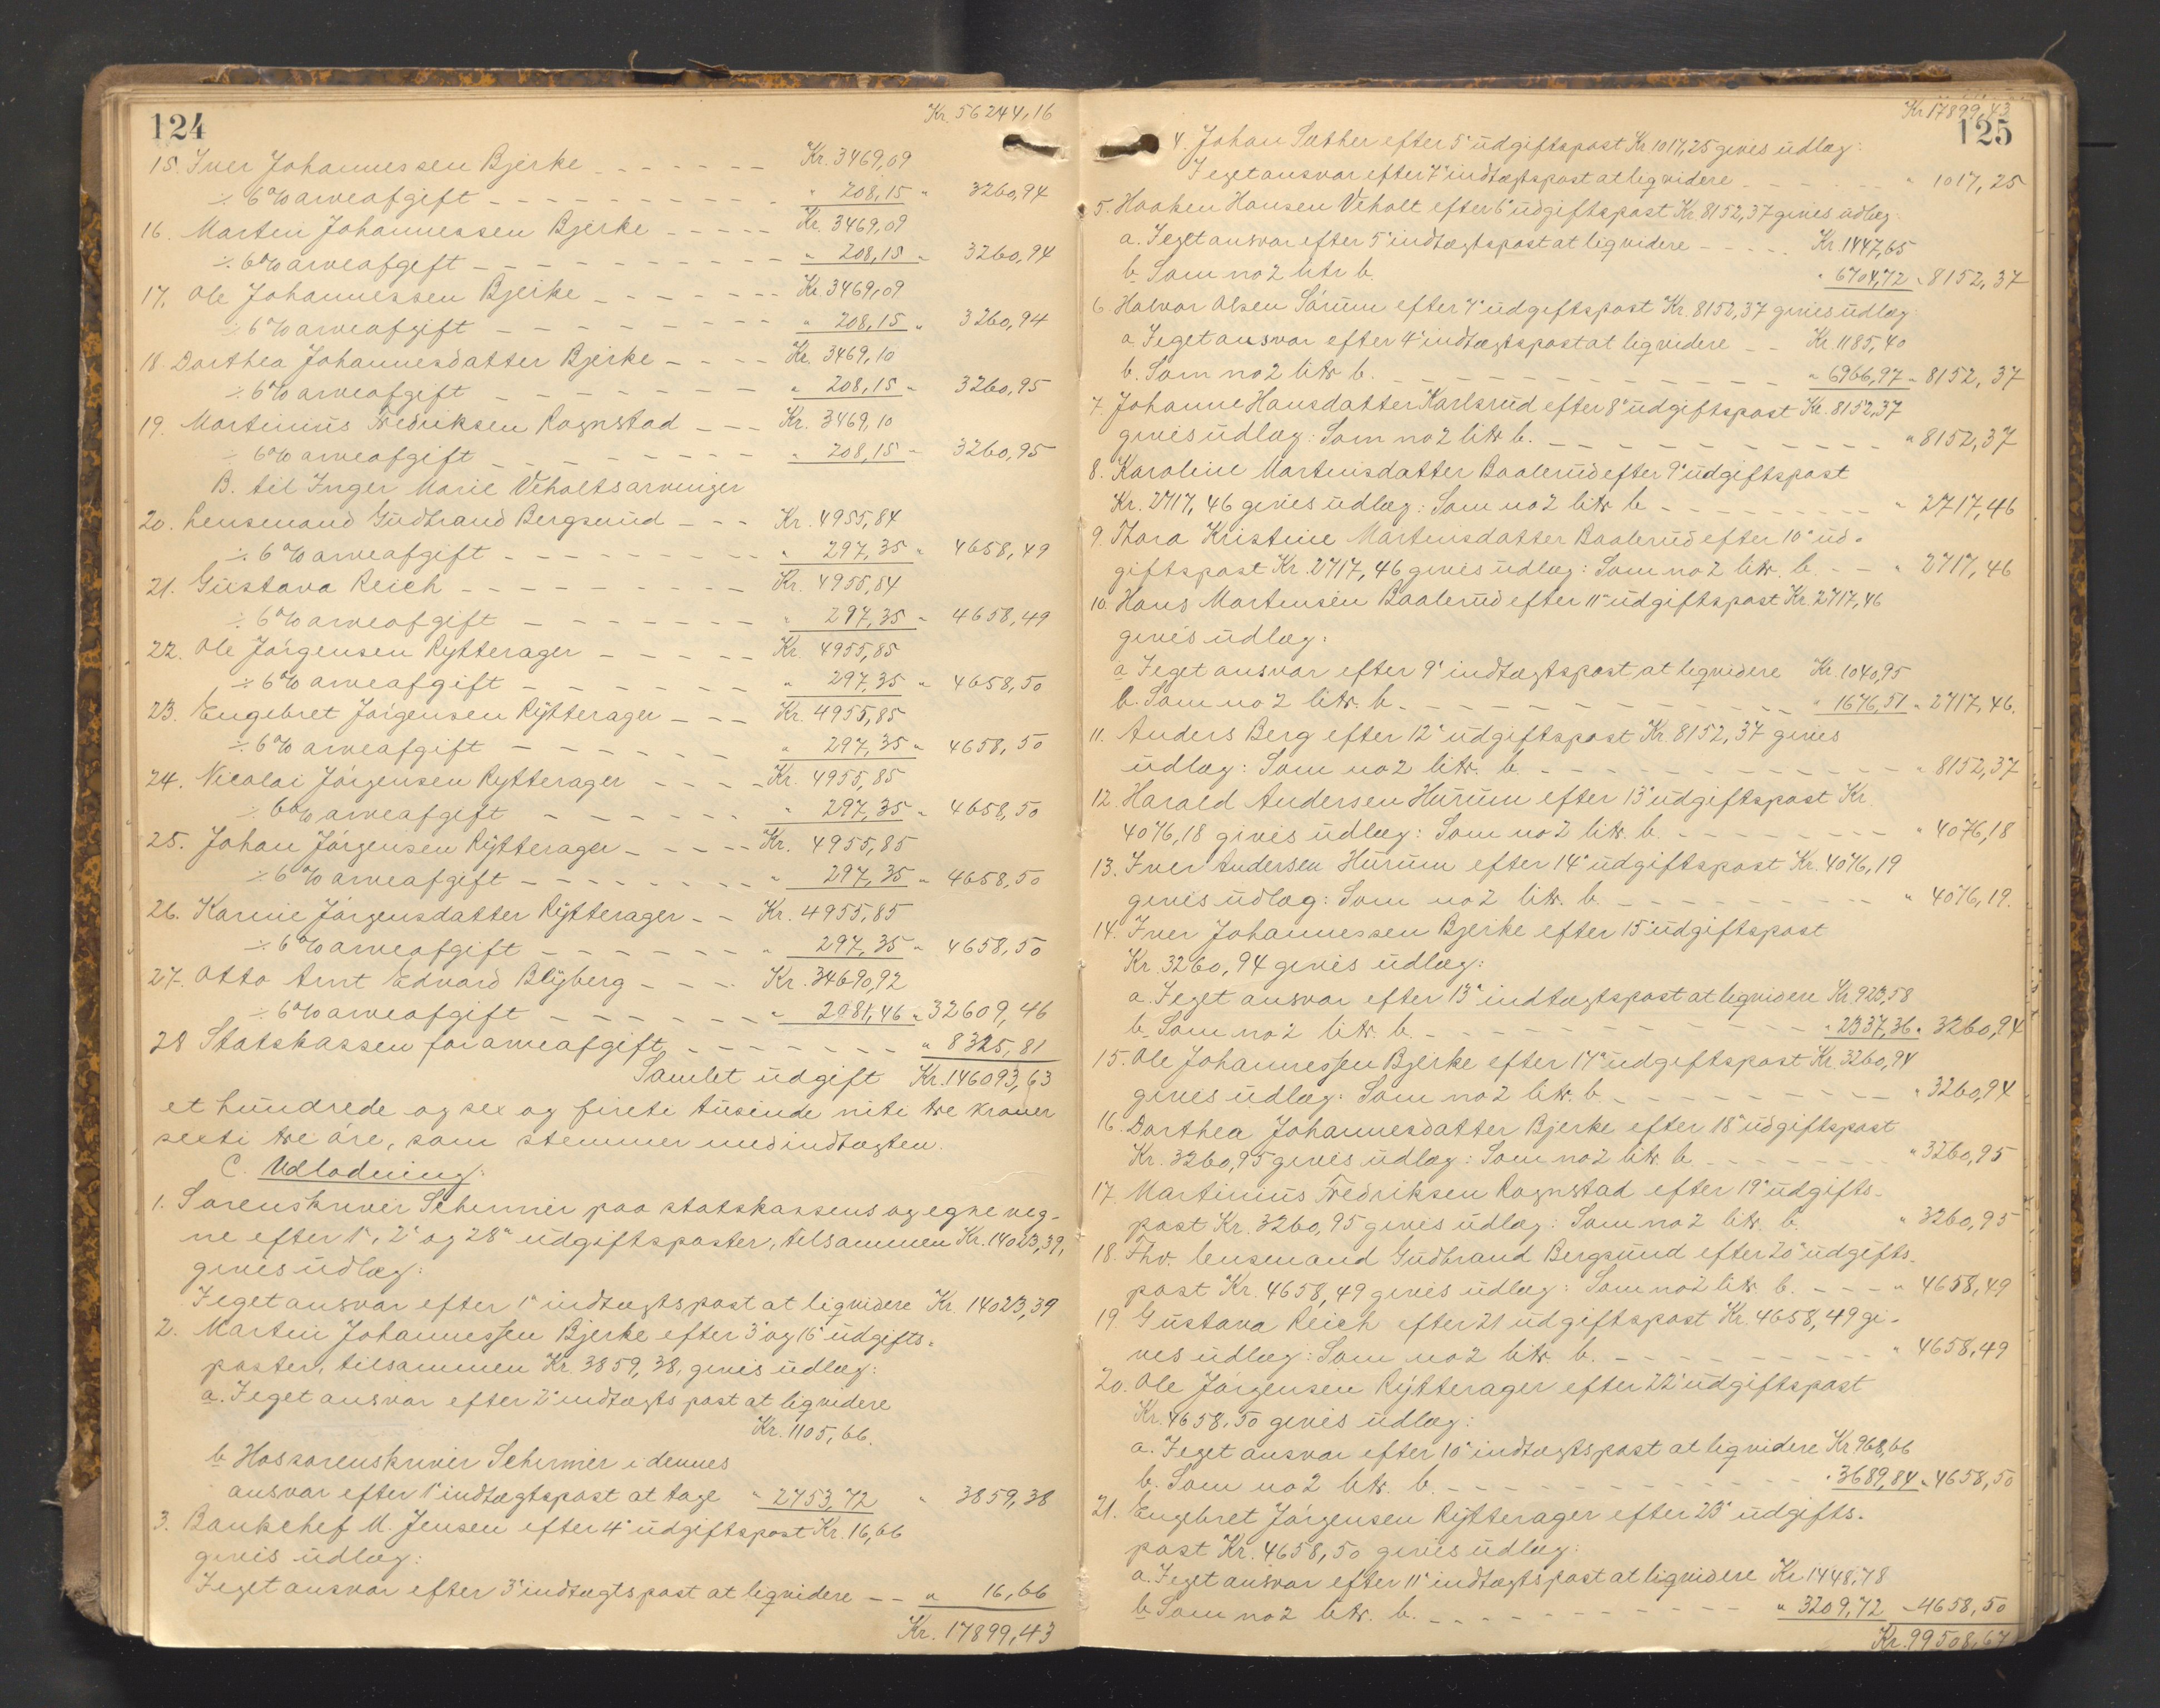 124
Kr. 56244,16
15. Iver Johannessen Bjerke - - - - - - Kr. 3469,09
÷ 6% arveafgift - - - - - - - - - " 208,15 " 3260,94
16. Martin Johannessen Bjerke - - - - - Kr. 3469,09
÷ 6% arveafgift - - - - - - - - - " 208,15 " 3260,94
17. Ole Johannessen Bjerke - - - - - - - Kr. 3469,09
÷ 6% arveafgift - - - - - - - - - " 208,15 " 3260,94
18 Dorthea Johannesdatter Bjerke - - - - Kr. 3469,10
÷ 6% arveafgift - - - - - - - - " 208,15 " 3260,95
19. Martinius Fredriksen Ragnstad - - - Kr. 3469,10
÷ 6% arveafgift - - - - - - - - " 208,15 " 3260,95
B. til Inger Marie Veholts arvinger
20. Lensmand Gudbrand Bergsund - - - Kr. 4955,84
÷ 6% arveafgift - - - - - - - - " 297,35 " 4658,49
21. Gustava Reich - - - - - - - - - Kr. 4955,84
÷ 6% arveafgift - - - - - - - " 297,35 " 4658,49
22. Ole Jörgensen Rytterager - - - - - Kr. 4955,85
÷ 6% arveafgift - - - - - - - " 297,35 " 4658,50
23. Engebret Jörgensen Rytterager - - - Kr. 4955,85
÷ 6% arveafgift - - - - - - - " 297,35 " 4658,50
24. Nicolai Jörgensen Rytterager - - - - Kr. 4955,85
÷ 6% arveafgift - - - - - - " 297,35 " 4658,50
25. Johan Jörgensen Rytterager - - - - - Kr. 4955,85
÷ 6% arveafgift - - - - - - - - " 297,35 " 4658,50
26. Karine Jörgensdatter Rytterager - - Kr. 4955,85
÷ 6% arveafgift - - - - - - - " 297,35 " 4658,50
27. Otto Arnt Edvard Blyberg - - - - Kr. 34690,92
÷ 6% arveafgift - - - - - - - " 2081,46 " 32609,46
28 Statskassen for arveafgift - - - - - - - " 8325,81
Samlet udgift Kr. 146093,63
et hundrede og sex og fireti tusinde niti tre kroner
sexti tre öre, som stemmer med indtægten.
C. Udlodning:
1. Sorenskriver Schirmer paa statskassens og egne veg-
ne efter 1', 2' og 28' udgiftsposter, tilsammen Kr. 14023,39,
gives udlæg:
I eget ansvar efter 1' indtægtspost at liqvidere Kr. 14023,39
2. Martin Johannessen Bjerke efter 3' og 16' udgifts-
poster, tilsammen Kr. 3859,38, gives udlæg:
a. I eget ansvar efter 2' indtægtspost at liqvidere
Kr. 1105,66.
b Hos sorenskriver Schirmer i dennes
ansvar efter 1' indtægtspost at tage " 2753,72 " 3859,38
3. Bankchef M. Jensen efter 4' udgiftspost Kr. 16,66
gives udlæg:
I eget ansvar efter 3' indtægtspost at liqvidere - - " 16,66
Kr. 17899,43
Kr 17899,43
125
4. Johan Sæther efter 5' udgiftspost Kr 1017,25 gives udlæg:
I eget ansvar efter 7' indtægtspost at liqvidere - - - - - - " 1017,25
5. Haaken Hansen Veholt efter 6' udgiftspost Kr. 8152,37 gives udlæg
a. I eget ansvar efter 5' indtægtspost at liqvidere - - - - Kr. 1447,65
b. Som no 2 litr b. " 6704,72 " 8152,37
6. Halvor Olsen Sörum efter 7' udgiftspost Kr. 8152,37 gives udlæg
a. I eget ansvar efter 4' indtægtspost at liqvidere - - Kr. 1185,40
b. Som no 2 litr b. - - - - - - - - - - " 6966,97 " 8152,37
7. Johanne Hansdatter Karlsrud efter 8' udgiftspost Kr. 8152,37
gives udlæg: Som no 2 litr b. - - - - - - - - - - " 8152,37
8. Karoline Martinsdatter Baalerud efter 9' udgiftspost
Kr. 2717,46 gives udlæg: Som no 2 litr b - - - - - - - - " 2717,46
9. Thora Kristine Martinsdatter Baalerud efter 10' ud-
giftspost Kr. 2717,46 gives udlæg: Som no 2 litr. b. - - " 2717,46
10. Hans Martinsen Baalerud efter 11' udgiftspost Kr. 2717,46
gives udlæg:
a I eget ansvar efter 9' indtægtspost at liqvidere Kr. 1040,95
b. Som no 2 litr. b. - - - - - - - - - - " 1676,51 " 2717,46.
11. Anders Berg efter 12' udgiftspost Kr. 8152,37 gives
udlæg: Som no 2 litr. b. - - - - - - - - - - " 8152,37
12. Harald Andersen Hurum efter 13' udgiftspost Kr.
4076,18 gives udlæg: Som no 2 litr. b. - - - - - - - - " 4076,18
13. Iver Andersen Hurum efter 14' udgiftspost Kr. 4076,19
gives udlæg: Som no 2 litr. b. - - - - - - - - - " 4076,19.
14. Iver Johannessen Bjerke efter 15' udgiftspost
Kr. 3260,94 gives udlæg:
a. I eget ansvar efter 13' indtægtspost at liqvidere Kr. 923,58
b. Som no 2 litr. b. - - - - - - - - - - " 2337,36 " 3260,94
15. Ole Johannessen Bjerke efter 17' udgiftspost Kr. 3260,94
gives udlæg: Som no 2 litr. b - - - - - - - - - - " 3260,94
16. Dorthea Johannesdatter Bjerke efter 18' udgiftspost
Kr. 3260,95 gives udlæg: Som no 2 litr. b - - - - - - - " 3260,95
17. Martinius Fredriksen Ragnstad efter 19' udgifts-
post Kr. 3260,95 gives udlæg: Som no 2 litr. b. " 3260,95
18. Fhv. lensmand Gudbrand Bergsund efter 20' udgifts-
post Kr. 4658,49 gives udlæg: Som no 2 litr. b. - - - - " 4658,49
19. Gustava Reich efter 21 udgiftspost Kr. 4658,49 gi-
ves udlæg: Som no 2 litr. b. - - - - - - - - - " 4658,49
20. Ole Jörgensen Rytterager efter 22' udgiftspost
Kr. 4658,50 gives udlæg:
a. I eget ansvar efter 10' indtægtspost at liqvidere Kr 968,66
b. Som no 2 litr. b. - - - - - - - - - - " 3689,84 " 4658,50
21. Engebret Jörgensen Rytterager efter 23' udgifts-
post Kr. 4658,50 gives udlæg:
a. I eget ansvar efter 11' indtægtspost at liqvidere Kr 1448,78
b Som no 2 litr. b. - - - - - - - - - - " 3209,72 " 4658,50
Kr. 99508,67